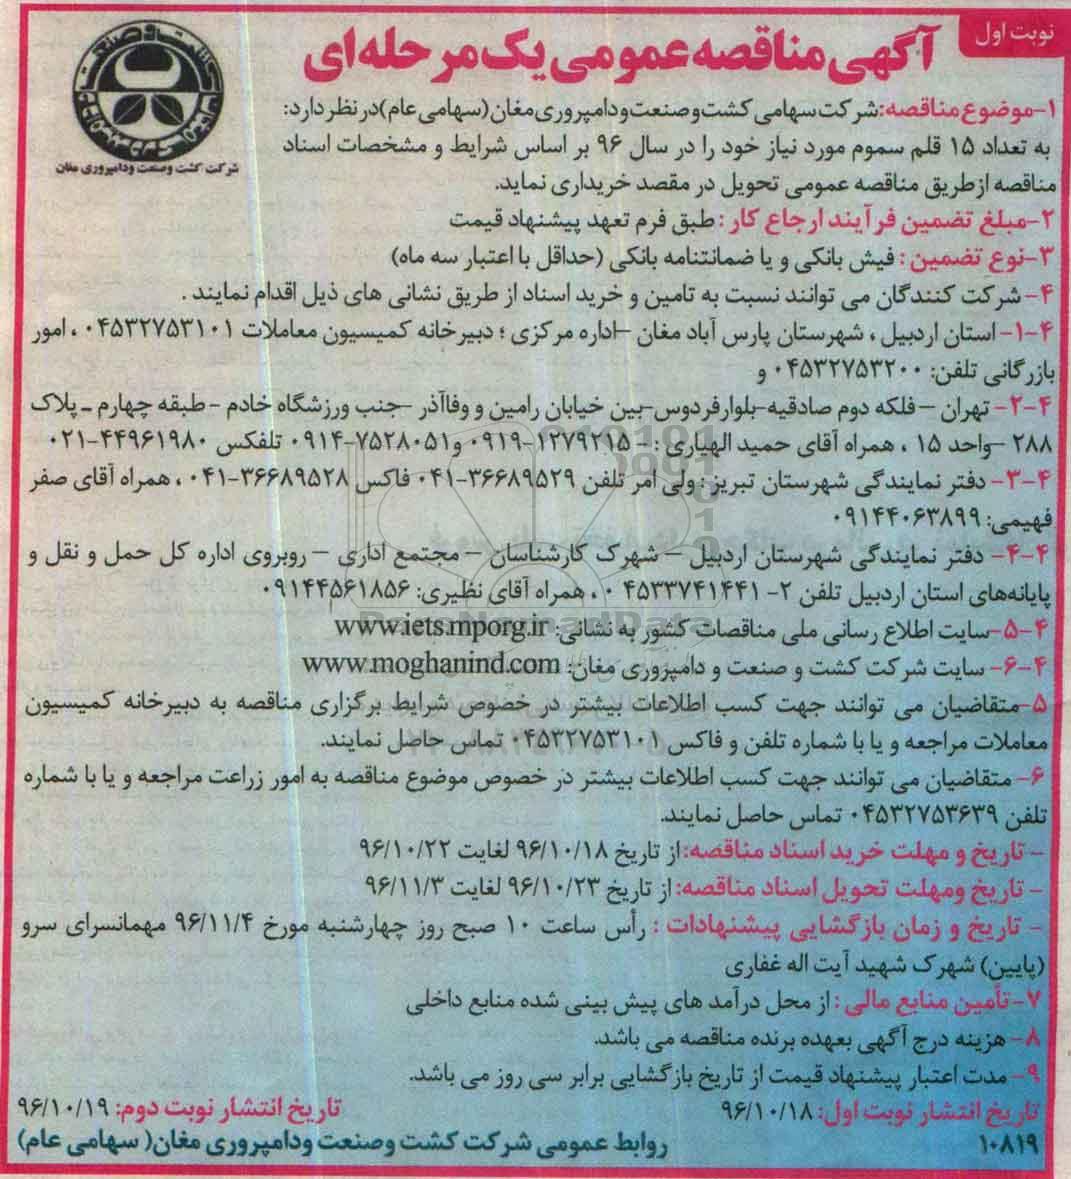 نوبت اول
آگهی مناقصه عمومی یک مرحله‌ای
شرکت کشت وصنعت ودامپروری مغان
۱-موضوع مناقصه:شرکت سهامی کشت وصنعت ودامپروری مغان(سهامی عام)در نظر دارد:
به تعداد ۱۵ قلم سموم مورد نیاز خود را در سال ۹۶ بر اساس شرایط و مشخصات اسناد
مناقصه ازطریق مناقصه عمومی تحویل در مقصد خریداری نماید.
۲-مبلغ تضمین فرآیند ارجاع کار : طبق فرم تعهد پیشنهاد قیمت
۳-نوع تضمین : فیش بانکی و یا ضمانتنامه بانکی (حداقل با اعتبار سه ماه)
۴- شرکت کنندگان می توانند نسبت به تامین و خرید اسناد از طریق نشانی های ذیل اقدام نمایند .
۱-۴- استان اردبیل ، شهرستان پارس آباد مغان –اداره مرکزی ؛ دبیرخانه کمیسیون معاملات ۰۴۵۳۲۷۵۳۱۰۱ ، امور
بازرگانی تلفن: ۰۴۵۳۲۷۵۳۲۰۰ و
۲-۴- تهران – فلکه دوم صادقیه-بلوارفردوس-بین خیابان رامین و وفاآذر -جنب ورزشگاه خادم - طبقه چهارم ـ پلاک
۲۸۸ –واحد ۱۵ ، همراه آقای حمید الهیاری : - ۱۲۷۹۲۱۵-۰۹۱۹ و۷۵۲۸۰۵۱-۰۹۱۴ تلفکس ۴۴۹۶۱۹۸۰-۰۲۱
۳-۴- دفتر نمایندگی شهرستان تبریز : ولی امر تلفن ۳۶۶۸۹۵۲۹-۰۴۱ فاکس ۳۶۶۸۹۵۲۸-۰۴۱ ، همراه آقای صفر
فهیمی: ۰۹۱۴۴۰۶۳۸۹۹
۴-۴- دفتر نمایندگی شهرستان اردبیل – شهرک کارشناسان – مجتمع اداری – روبروی اداره کل حمل و نقل و
پایانه‌های استان اردبیل تلفن ۲- ۴۵۳۳۷۴۱۴۴۱ ۰ ، همراه آقای نظیری: ۰۹۱۴۴۵۶۱۸۵۶
۵-۴-سایت اطلاع رسانی ملی مناقصات کشور به نشانی: www.iets.mporg.ir
۶-۴- سایت شرکت کشت و صنعت و دامپروری مغان: www.moghanind.com
۵-متقاضیان می توانند جهت کسب اطلاعات بیشتر در خصوص شرایط برگزاری مناقصه به دبیرخانه کمیسیون
معاملات مراجعه و یا با شماره تلفن و فاکس ۰۴۵۳۲۷۵۳۱۰۱ تماس حاصل نمایند.
۶- متقاضیان می توانند جهت کسب اطلاعات بیشتر در خصوص موضوع مناقصه به امور زراعت مراجعه و یا با شماره
تلفن ۰۴۵۳۲۷۵۳۶۳۹ تماس حاصل نمایند.
- تاریخ و مهلت خرید اسناد مناقصه:از تاریخ ۹۶/۱۰/۱۸ لغایت ۹۶/۱۰/۲۲
- تاریخ ومهلت تحویل اسناد مناقصه: از تاریخ ۹۶/۱۰/۲۳ لغایت ۹۶/۱۱/۳
- تاریخ و زمان بازگشایی پیشنهادات : رأس ساعت ۱۰ صبح روز چهارشنبه مورخ ۹۶/۱۱/۴ مهمانسرای سرو
(پایین) شهرک شهید آیت اله غفاری
۷-تأمین منابع مالی : از محل درآمد های پیش بینی شده منابع داخلی
۸- هزینه درج آگهی بعهده برنده مناقصه می باشد.
۹- مدت اعتبار پیشنهاد قیمت از تاریخ بازگشایی برابر سی روز می باشد.
تاریخ انتشار نوبت اول: ۹۶/۱۰/۱۸ تاریخ انتشار نوبت دوم: ۹۶/۱۰/۱۹
۱۰۸۱۹ روابط عمومی شرکت کشت وصنعت ودامپروری مغان( سهامی عام)